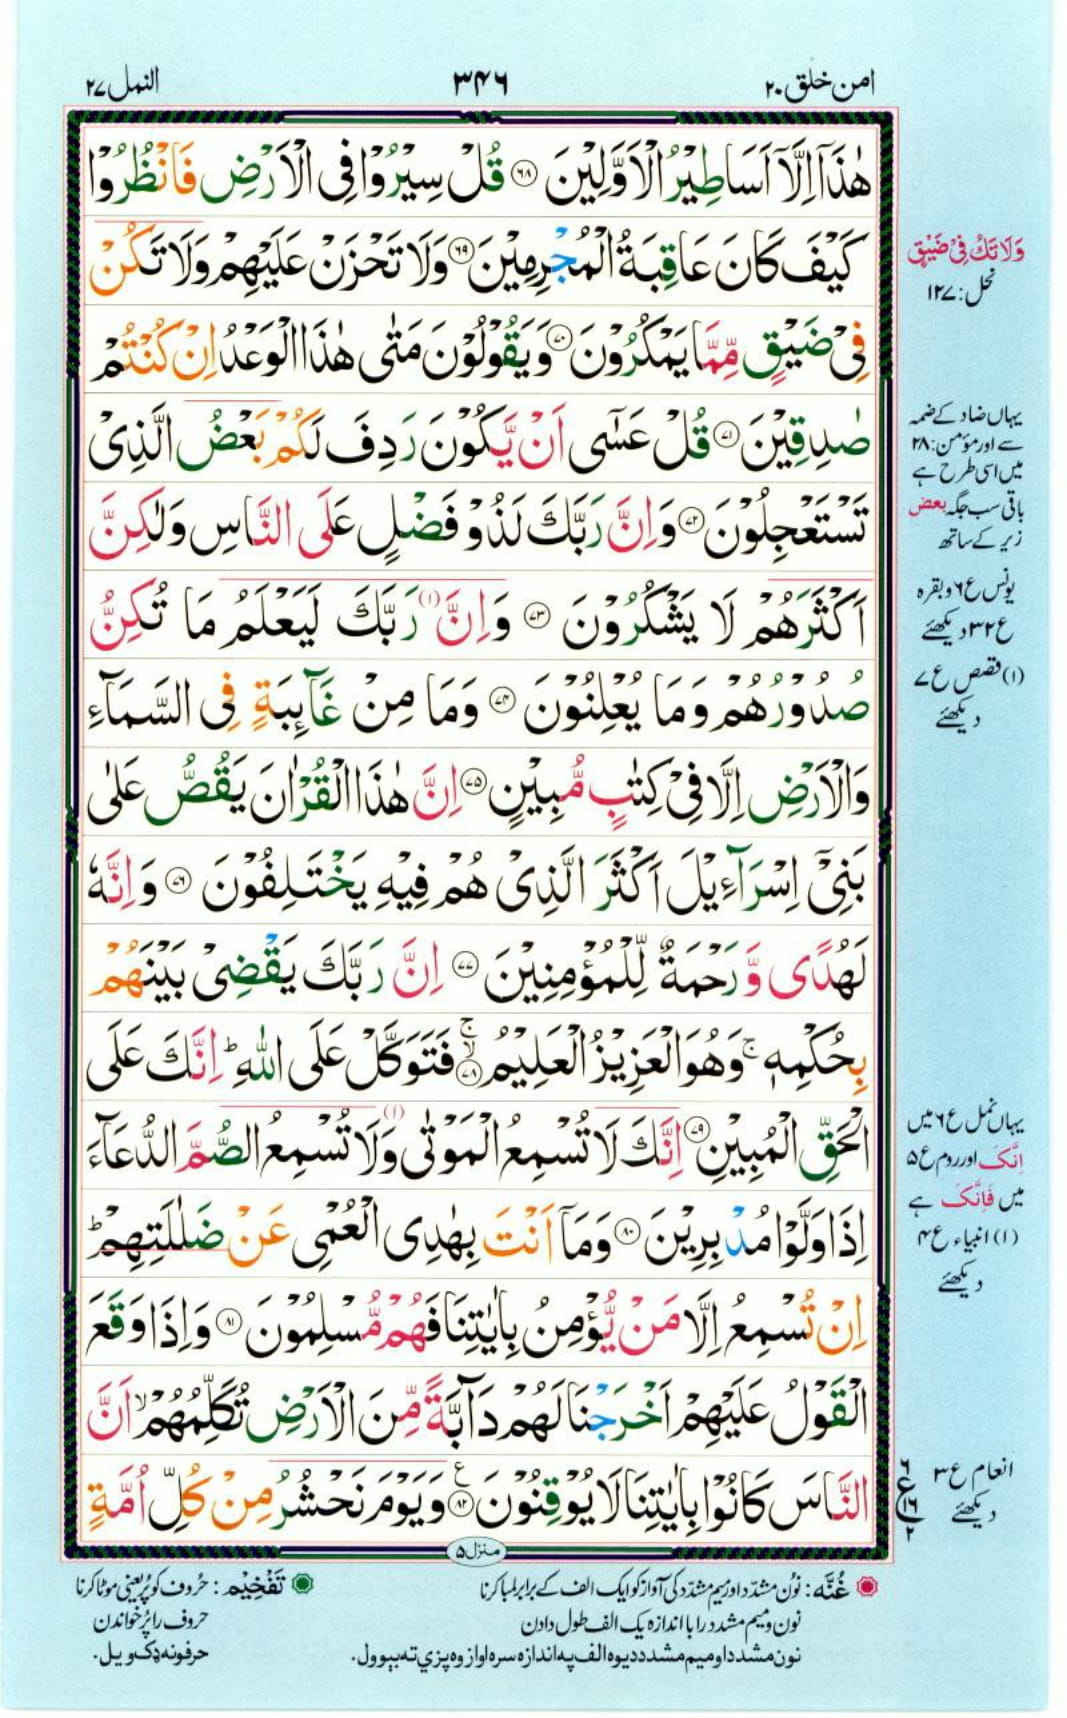 امن خلق ٢٠
٣٤٦
النمل ٢٧
هٰذَاۤ اِلَّاۤ اَسَاطِيْرُ الْاَوَّلِيْنَ ۝٦٨ قُلْ سِيْرُوْا فِى الْاَرْضِ فَانْظُرُوْا
كَيْفَ كَانَ عَاقِبَةُ الْمُجْرِمِيْنَ ۝٦٩ وَلَا تَحْزَنْ عَلَيْهِمْ وَلَا تَكُنْ
فِىْ ضَيْقٍ مِّمَّا يَمْكُرُوْنَ ۝٧٠ وَيَقُوْلُوْنَ مَتٰى هٰذَا الْوَعْدُ اِنْ كُنْتُمْ
صٰدِقِيْنَ ۝٧١ قُلْ عَسٰٓى اَنْ يَّكُوْنَ رَدِفَ لَكُمْ بَعْضُ الَّذِىْ
تَسْتَعْجِلُوْنَ ۝٧٢ وَاِنَّ رَبَّكَ لَذُوْ فَضْلٍ عَلَى النَّاسِ وَلٰكِنَّ
اَكْثَرَهُمْ لَا يَشْكُرُوْنَ ۝٧٣ وَاِنَّ (١) رَبَّكَ لَيَعْلَمُ مَا تُكِنُّ
صُدُوْرُهُمْ وَمَا يُعْلِنُوْنَ ۝٧٤ وَمَا مِنْ غَآئِبَةٍ فِى السَّمَآءِ
وَالْاَرْضِ اِلَّا فِىْ كِتٰبٍ مُّبِيْنٍ ۝٧٥ اِنَّ هٰذَا الْقُرْاٰنَ يَقُصُّ عَلٰى
بَنِىْۤ اِسْرَآءِيْلَ اَكْثَرَ الَّذِىْ هُمْ فِيْهِ يَخْتَلِفُوْنَ ۝٧٦ وَاِنَّهٗ
لَهُدًى وَّرَحْمَةٌ لِّلْمُؤْمِنِيْنَ ۝٧٧ اِنَّ رَبَّكَ يَقْضِىْ بَيْنَهُمْ
بِحُكْمِهٖ ۚ وَهُوَ الْعَزِيْزُ الْعَلِيْمُ ۝٧٨ۙۚ فَتَوَكَّلْ عَلَى اللّٰهِ ؕ اِنَّكَ عَلَى
الْحَقِّ الْمُبِيْنِ ۝٧٩ اِنَّكَ لَا تُسْمِعُ الْمَوْتٰى (١) وَلَا تُسْمِعُ الصُّمَّ الدُّعَآءَ
اِذَا وَلَّوْا مُدْبِرِيْنَ ۝٨٠ وَمَاۤ اَنْتَ بِهٰدِى الْعُمْىِ عَنْ ضَلٰلَتِهِمْ ؕ
اِنْ تُسْمِعُ اِلَّا مَنْ يُّؤْمِنُ بِاٰيٰتِنَا فَهُمْ مُّسْلِمُوْنَ ۝٨١ وَاِذَا وَقَعَ
الْقَوْلُ عَلَيْهِمْ اَخْرَجْنَا لَهُمْ دَآبَّةً مِّنَ الْاَرْضِ تُكَلِّمُهُمْ ۙ اَنَّ
النَّاسَ كَانُوْا بِاٰيٰتِنَا لَا يُوْقِنُوْنَ ۝٨٢ۧ وَيَوْمَ نَحْشُرُ مِنْ كُلِّ اُمَّةٍ
وَلَا تَكُ فِىْ ضَيْقٍ
نحل: ١٢٧
یہاں ضاد کے ضمہ
سے اور مؤمن: ٢٨
میں اسی طرح ہے
باقی سب جگہ بعض
زیر کے ساتھ
یونس ع ٦ و بقرہ
ع ٣٢ دیکھئے
(١) قصص ع ٧
دیکھئے
یہاں نمل ع ٦ میں
اِنَّکَ اور روم ع ٥
میں فَاِنَّکَ ہے
(١) انبیاء ع ٤
دیکھئے
انعام ع ٣
دیکھئے
٦
ع
١٦
٢
منزل ٥
غُنَّه: نُون مشدّد اور مِیم مشدّد کی آواز کو ایک الف کے برابر لمبا کرنا
نون و میم مشدد را با اندازہ یک الف طول دادن
نون مشدد او میم مشدد دیوه الف په اندازه سره اواز وه پزي ته بېوول.
تَفْخِیْم: حُروف کو پُر یعنی موٹا کرنا
حروف را پُر خواندن
حرفونه ډک ویل.